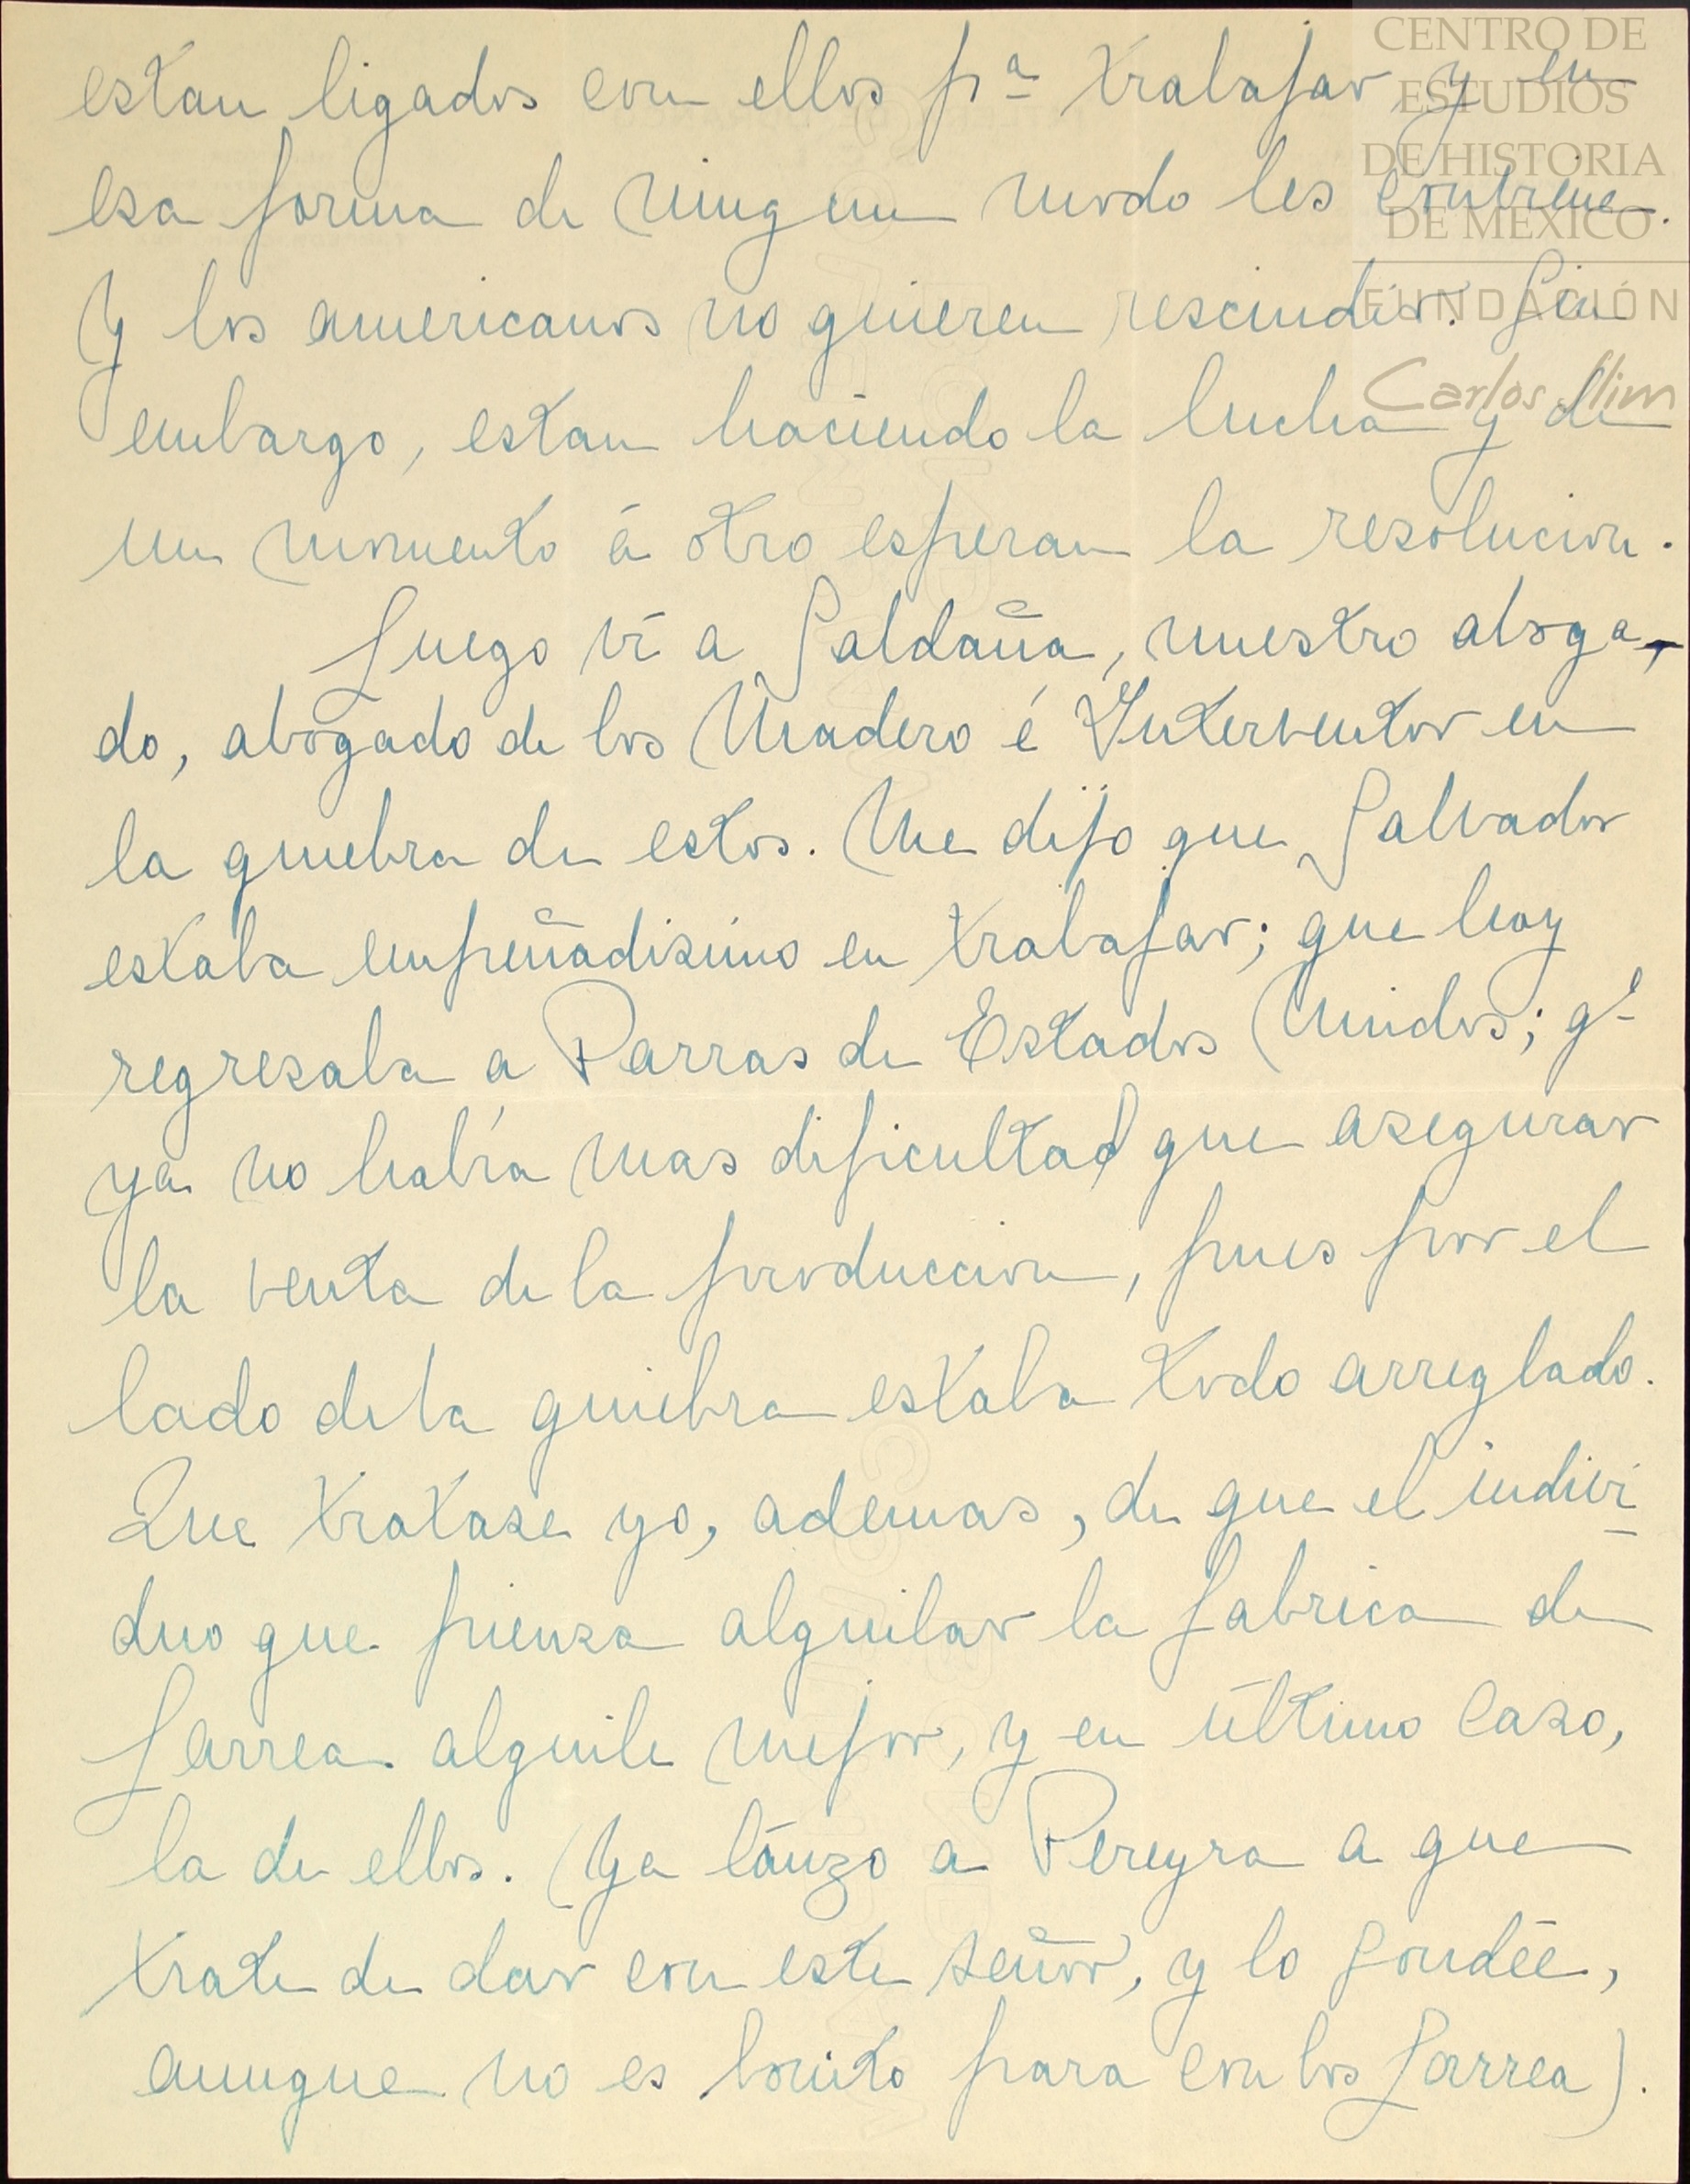 CENTRO DE
ESTUDIOS
DE HISTORIA
DE MEXICO
FUNDACIÓN
Carlos Slim
estan ligados con ellos pª trabajar y en
esa forma de ningun modo les conbiene.
Y los americanos no quieren rescindir. Sin
embargo, estan haciendo la lucha y de
un momento á otro esperan la resolucion.
Luego ví a Saldaña, nuestro aboga-
do, abogado de los Madero é Interventor en
la quiebra de estos. Me dijo que Salvador
estaba empeñadisimo en trabajar; que hoy
regresaba a Parras de Estados Unidos; qᵉ
ya no había mas dificultad que asegurar
la venta de la produccion, pues por el
lado de la quiebra estaba todo arreglado.
Que tratase yo, ademas, de que el indivi-
duo que piensa alquilar la fabrica de
Larrea alquile mejor, y en último caso,
la de ellos. (Ya lánzo a Pereyra a que
trate de dar con este señor, y lo sondée,
aunque no es bonito para con los Larrea).